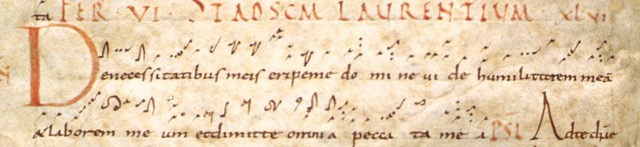 ta FER VI STAD SCM LAURENTIUM XLVI
De necessitatibus meis eripe me do mi ne vi de humilitatem meā
& laborem me um et dimitte omni a pecca ta me a PSL Ad te dn̄e